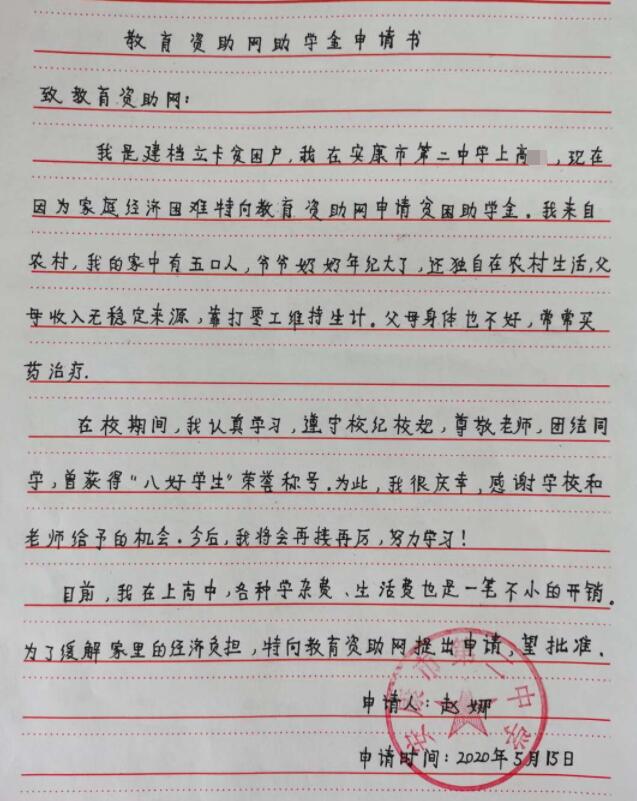 教育资助网助学金申请书
致教育资助网：
我是建档立卡贫困户，我在安康市第二中学上高，现在
因为家庭经济困难特向教育资助网申请贫困助学金。我来自
农村，我的家中有五口人，爷爷奶奶年纪大了，还独自在农村生活，父
母收入无稳定来源，靠打零工维持生计。父母身体也不好，常常买
药治疗.
在校期间，我认真学习，遵守校纪校规，尊敬老师，团结同
学，曾获得“八好学生”荣誉称号.为此，我很庆幸，感谢学校和
老师给予的机会.今后，我将会再接再厉，努力学习！
目前，我在上高中，各种学杂费、生活费也是一笔不小的开销。
为了缓解家里的经济负担，特向教育资助网提出申请，望批准.
申请人：赵娜
申请时间：2020年5月15日
安康市第二中学